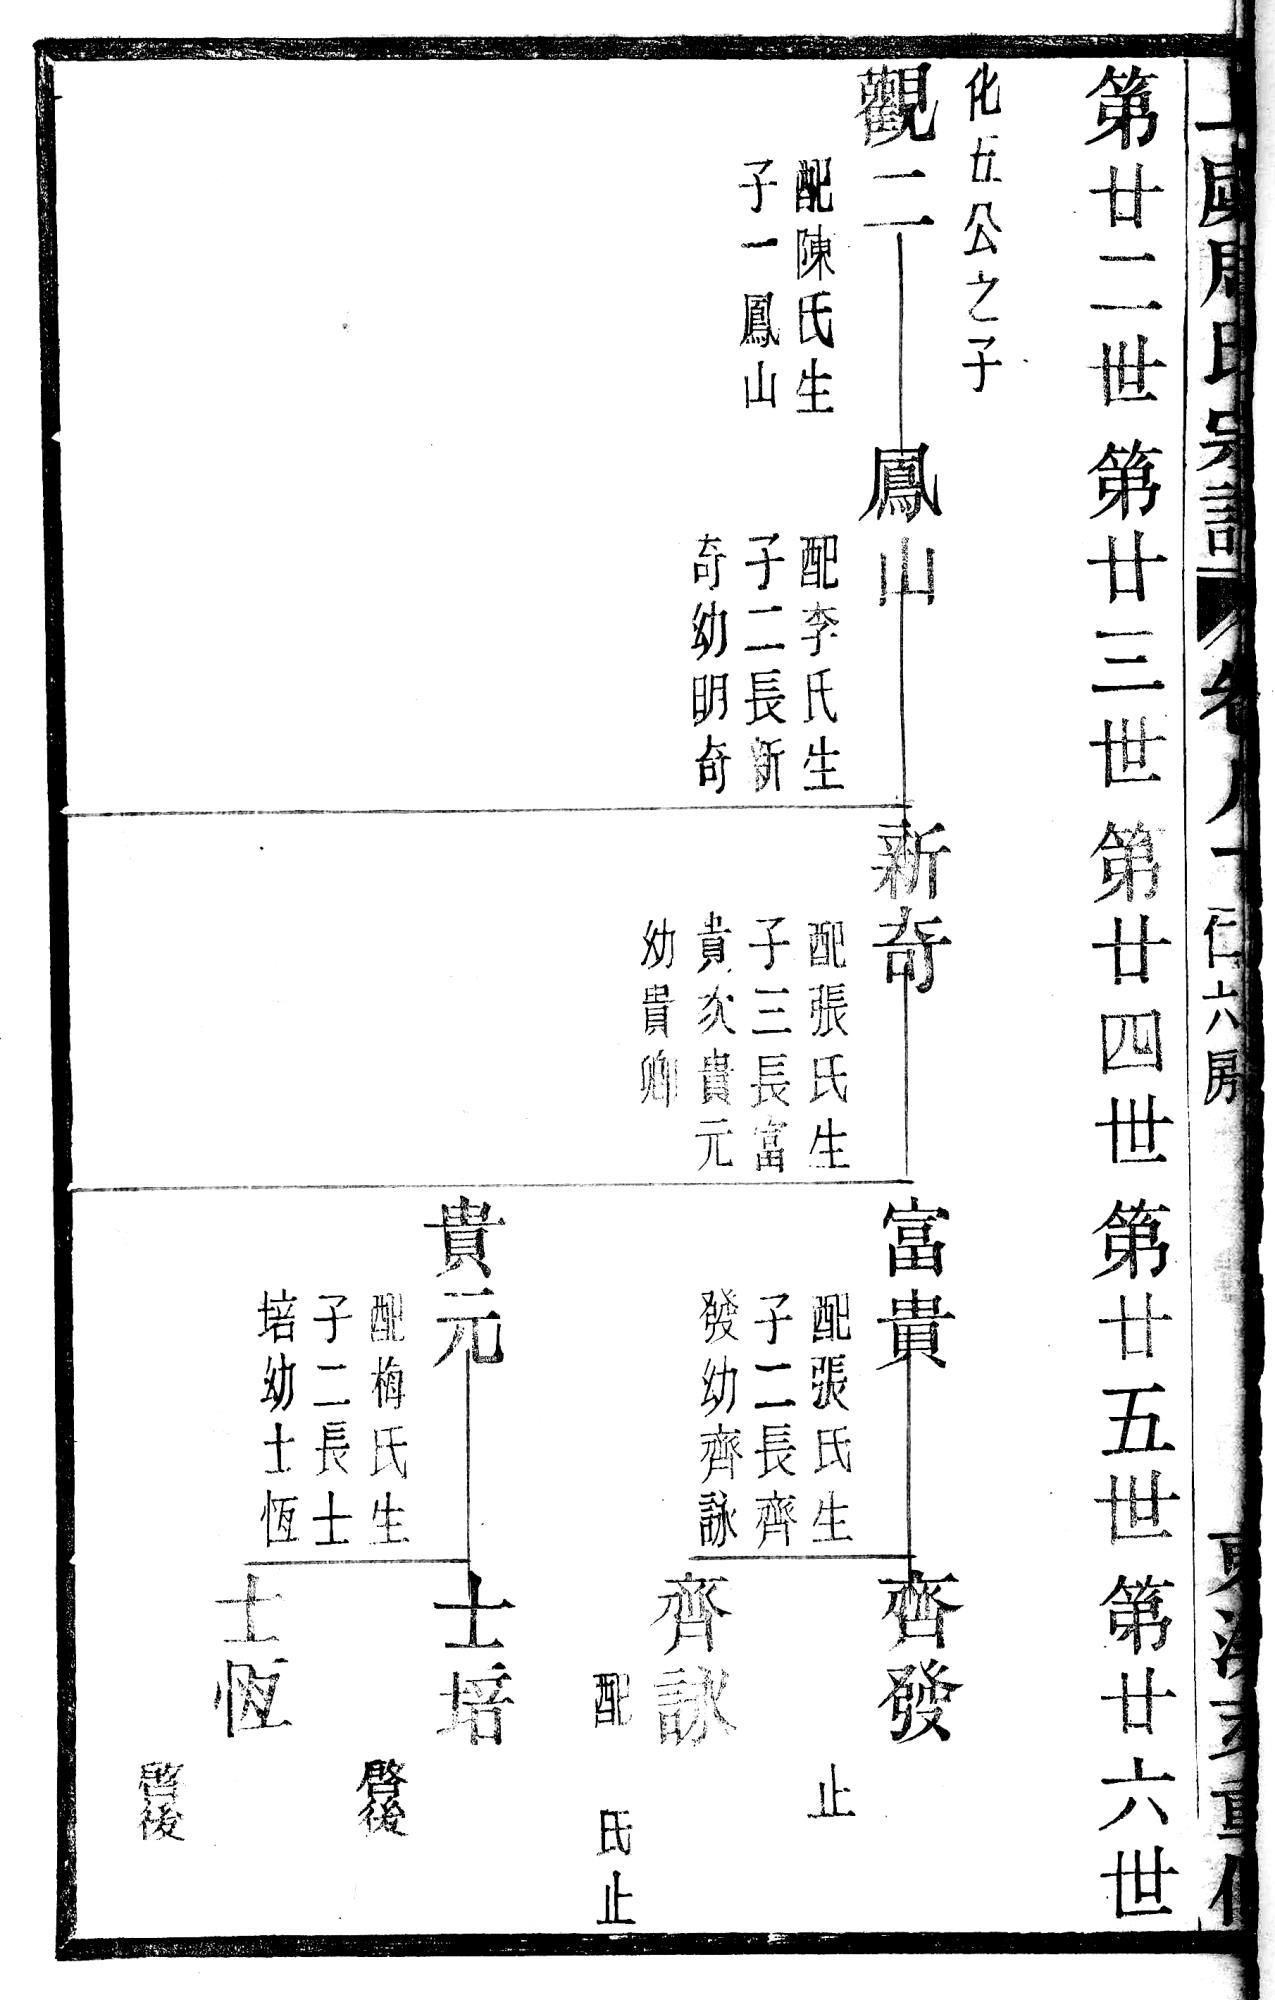 周氏宗譜
仁六房
第廿二世
第廿三世
第廿四世
第廿五世
第廿六世
化五公之子
觀二
配陳氏生
子一鳳山
鳳山
配李氏生
子二長新
奇幼明奇
新奇
配張氏生
子三長富
貴次貴元
幼貴卿
富貴
配張氏生
子二長齊
發幼齊詠
齊發
止
齊詠
配 氏止
貴元
配梅氏生
子二長士
培幼士恆
士培
啓後
士恆
啓後